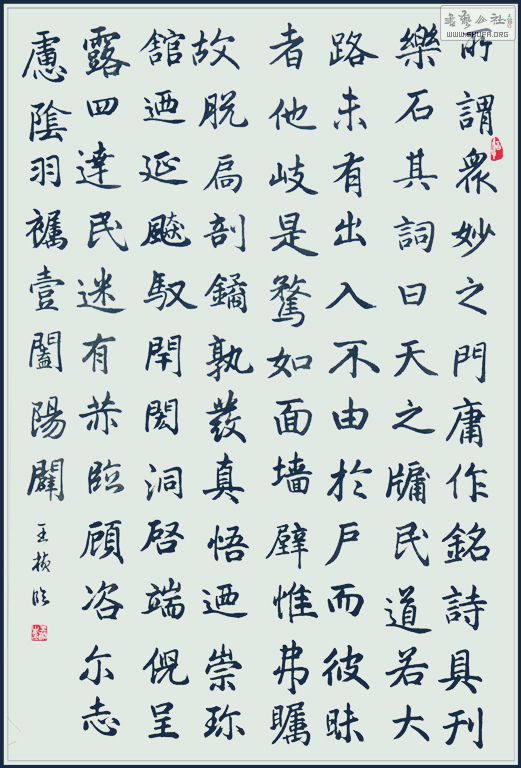 所謂眾妙之門庸作銘詩具刊
樂石其詞曰天之牖民道若大
路未有出入不由於戶而彼昧
者他岐是騖如面墙壁惟弗矚
故脫扃剖鐍孰發真悟迺崇珎
舘迺延飈馭閈閎洞啓端倪呈
露四達民迷有赫臨顧咨尔志
慮陰羽襹壹闔陽闢
王楨臨
書藝公社
WWW.SHUFA.ORG